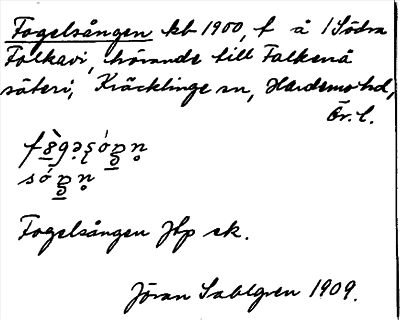 Fogelsången kb 1900, f å 1 Södra
Folkavi, hörande till Falkenå
säteri, Kräcklinge sn, Hardemo hd,
Ör. l.
Fogelsången Jfp ek.
Jöran Sahlgren 1909.